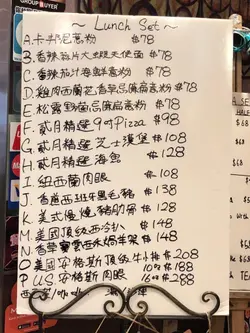 GROUP BUYER
~ Lunch Set ~
A. 卡邦尼意粉 $78
B. 香辣茄片大蝦天使面 $78
C. 香辣茄汁海鮮意粉 $78
D. 雞肉西蘭花香草忌廉扁意粉 $78
E. 松露野菌忌廉扁意粉 $78
F. 貳月精選9吋Pizza $98
G. 貳月精選芝士漢堡 $108
H. 貳月精選海 $128
I. 紐西蘭肉眼 $108
J. 香煎西班牙黑毛豬 $138
K. 美式慢燒豬肋骨 $128
M. 美國頂級西冷 $148
N. 香草蜜 羊架 $148
O. 美國安格斯頂級牛小排 $208
P. U.S. 安格斯肉眼 10oz $188
16oz $288